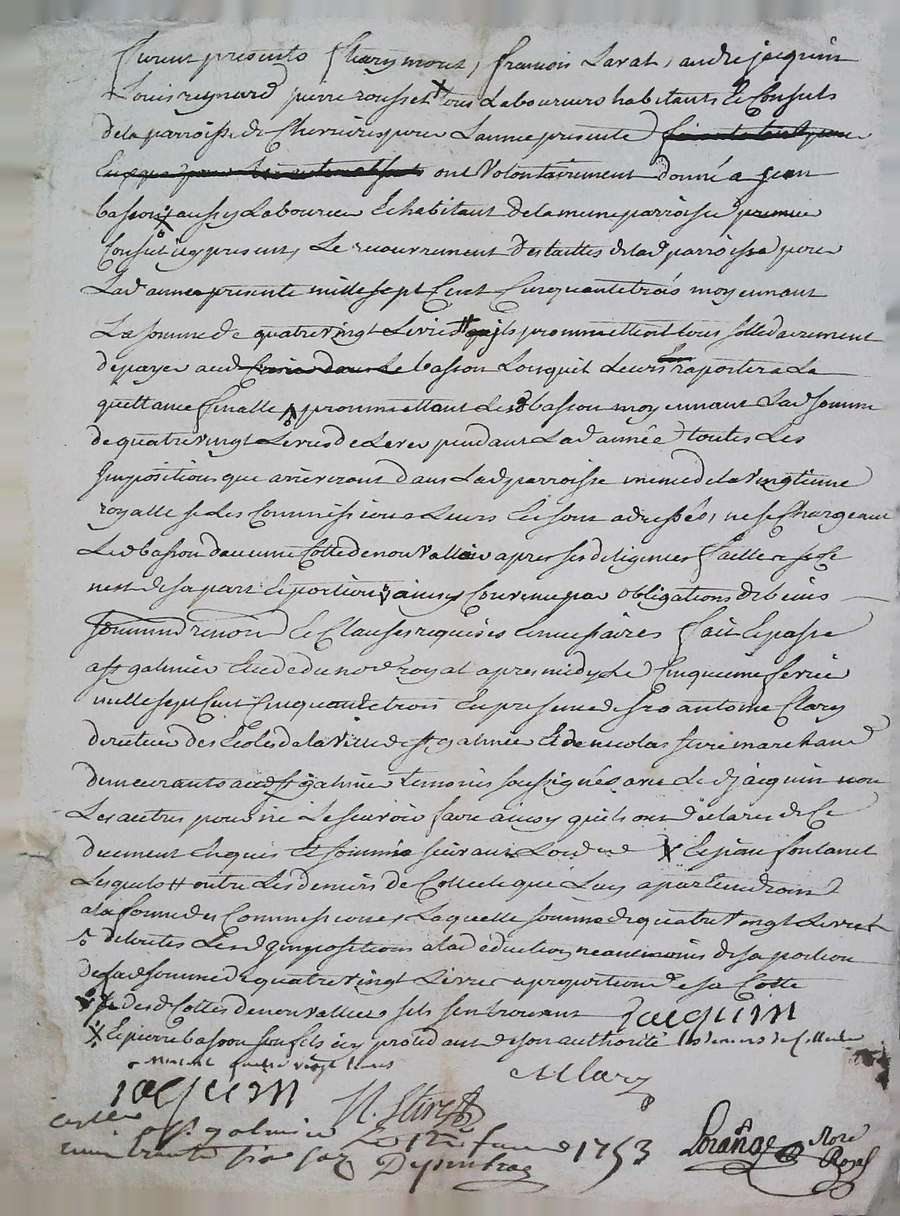 furent presents Clary mont, francois Laval, andre jacquin
Louis reynard pierre rousset X tous Laboureurs habitants Et Consuls
dela parroisse de Chevrieres pour Lannee presente
ont Volontairement donné a jean
basson X aussy Laboureur Et habitant dela meme parroisse premier
Consul icy present, Le recouvrement des tailles de lad parroisse pour
Lad annee presente mille sept Cent Cinquante trois moyennant
La somme de quatre vingt Livres # quils prommettent tous sollidairement
de payer aud basson Lorsquil Leurs raportera La
quittance finalle, prommettant Led basson moyennant Lad somme
de quatre vingt Livres de Lever pendant Lad année toutes Les
Impositions que arriveront dans Lad parroisse meme de la Vingtieme
royalle sy Les Commissions Leurs En sont adressées, ne se Chargeant
Led basson daucune Cotte de non Valleur apres ses diligences faittes Et Ce
nest de sa part Et portion X ainsy Convenu par obligations de biens
soumis renon Et Clauses requises Et necessaires fait Et passé
a st galmier Etude du nore royal apres midy Le Cinquieme fevrier
mille sept Cent Cinquante trois En presence de sr antoine Clary
directeur des Ecoles de la Ville de st galmier Et de nicolas marchand
demeurants aud st galmier temoins soussignés avec Led jacquin non
Les autres pour ne Le scavoir faire ainsy quils ont déclaré de Ce
duement Enquis Et sommés suivant Lordce X Et jean fontanel
Lesquels # outre Les deniers de Collecte que Luy apartiendront
a la forme des Commissions, Laquelle somme de quatre Vingt Livres
de toutes Lesd Impositions a la deduction neanmoins de sa portion
de lad somme de quatre vingt Livres a proportion de sa Cotte
desd Cottes de non Valleurs sils sen trouvent jacquin
X Et pierre basson son fils icy procedant de son authorité les deniers de Collecte
montent quatre vingt livres
jacquin
A Clary
N.
Lorange Nore Royal
a st galmier Le 1753